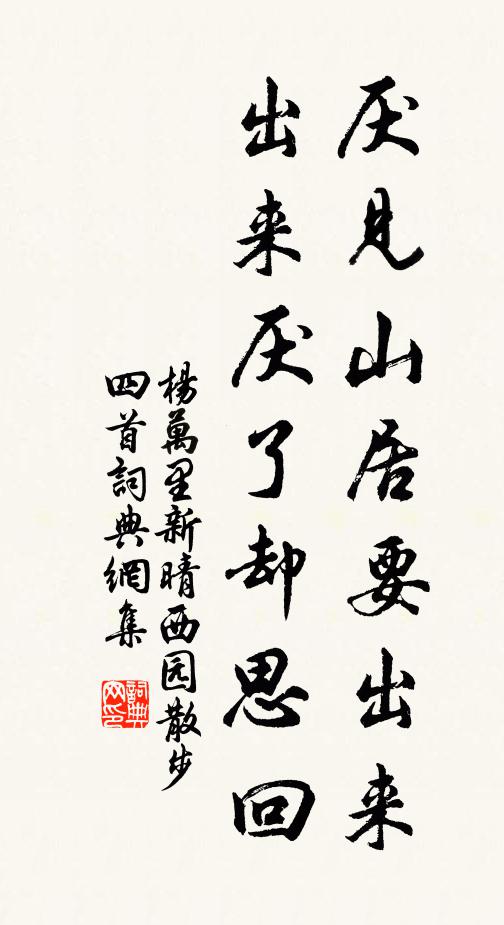 厌见山居要出来
出来厌了却思回
楊萬里新晴西园散步
四首詞典網集
詞典
网印